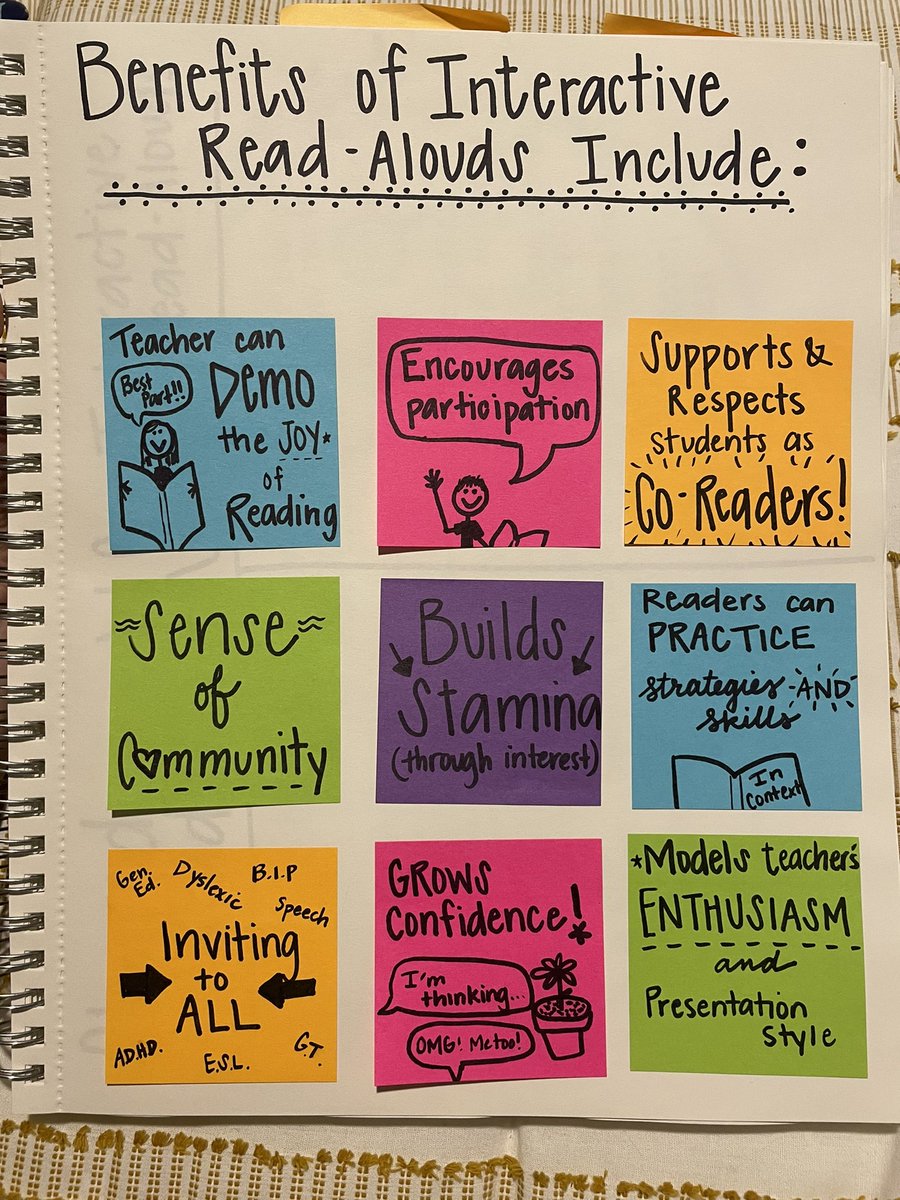 Benefits of Interactive
Read-Alouds Include:
Teacher can
Best
Part!!
DEMO
the JOY*
of
Reading
Encourages
participation
Supports &
Respects
students as
Co-Readers!
Sense
of
Community
Builds
Stamina
(through interest)
Readers can
PRACTICE
strategies AND
skills
In
Context
Gen.
Ed.
Dyslexic
B.I.P
Speech
Inviting
to
ALL
AD.HD.
E.S.L.
G.T.
GROWS
Confidence!
I'm
thinking...
OMG! Me too!
*Models teacher's
ENTHUSIASM
and
Presentation
Style